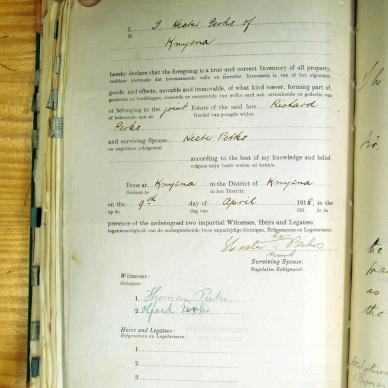 I, I Hester Parks of
Knysna
hereby declare that the foregoing is a true and correct Inventory of all property,
verklaar hiermede dat bovenstaande volle en korrekte Inventaris is van al het eigendom,
goods, and effects, movable and immovable, of what kind soever, forming part of,
goederen en bezittingen, roerende en onroerende van welke aard ook, uitmakende en gedeelte van
or belonging to the joint Estate of the said late Richard
of behorende aan de Boedel van gezegde wijlen
Parks
and surviving Spouse Hester Parks
en nagelaten echtgenoot
according to the best of my knowledge and belief.
volgens mijn beste weten en kennis.
Done at Knysna in the District of Knysna
Gedaan te in het Distrikt
on the 9th day of April 191
op de dag van 191 in de
presence of the undersigned two impartial Witnesses, Heirs and Legatees:
tegenwoordigheid van de ondergetekende twee onpartijdige Getuigen, Erfgenamen en Legatarissen:
her
Hester Parks
mark
Surviving Spouse.
Nagelaten Echtgenoot.
Witnesses:
Getuigen:
1. Thomas Parks
2. Alfred
Heirs and Legatees:
Erfgenamen en Legatarissen:
1.
2.
3.